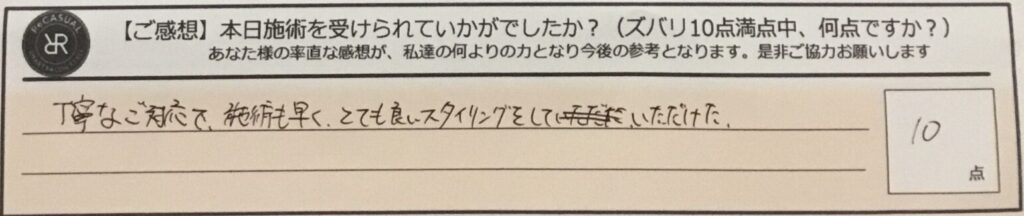 ReCASUAL
RR
【ご感想】本日施術を受けられていかがでしたか？（ズバリ10点満点中、何点ですか？）
あなた様の率直な感想が、私達の何よりの力となり今後の参考となります。是非ご協力お願いします
丁寧なご対応で、施術も早く、とても良いスタイリングをしていただけた。
10
点